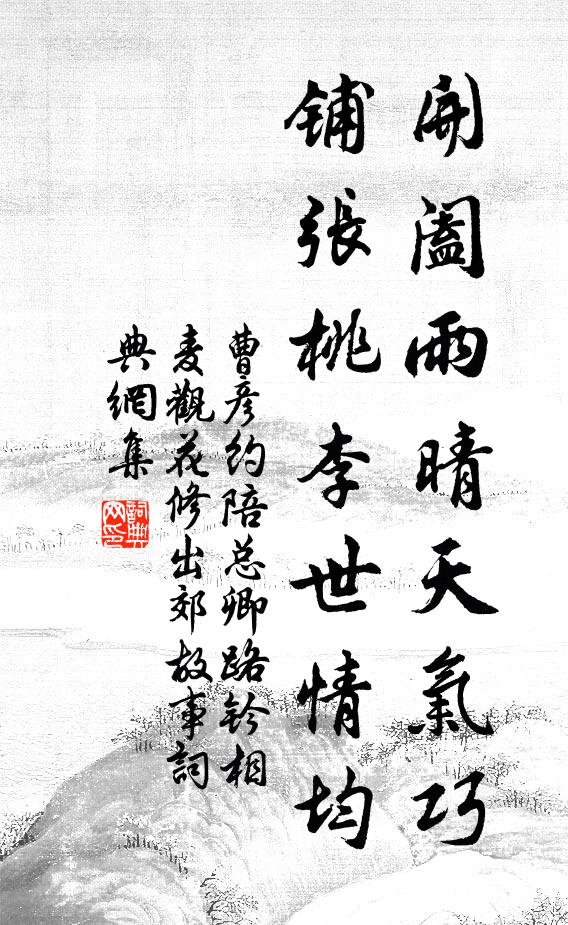 開闔雨晴天氣巧
鋪張桃李世情均
曹彦約陪总卿路钤相
麦觀花修出郊故事詞
典網集
詞典
网印